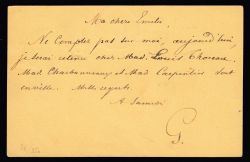 Ma chère Emilie,
Ne Comptez pas sur moi, aujourd'hui,
je serai retenu chez Mad. Louis
Mad Charbonneaux et Mad Carpentier sont
en ville. Mille regrets.
A Samedi
G.